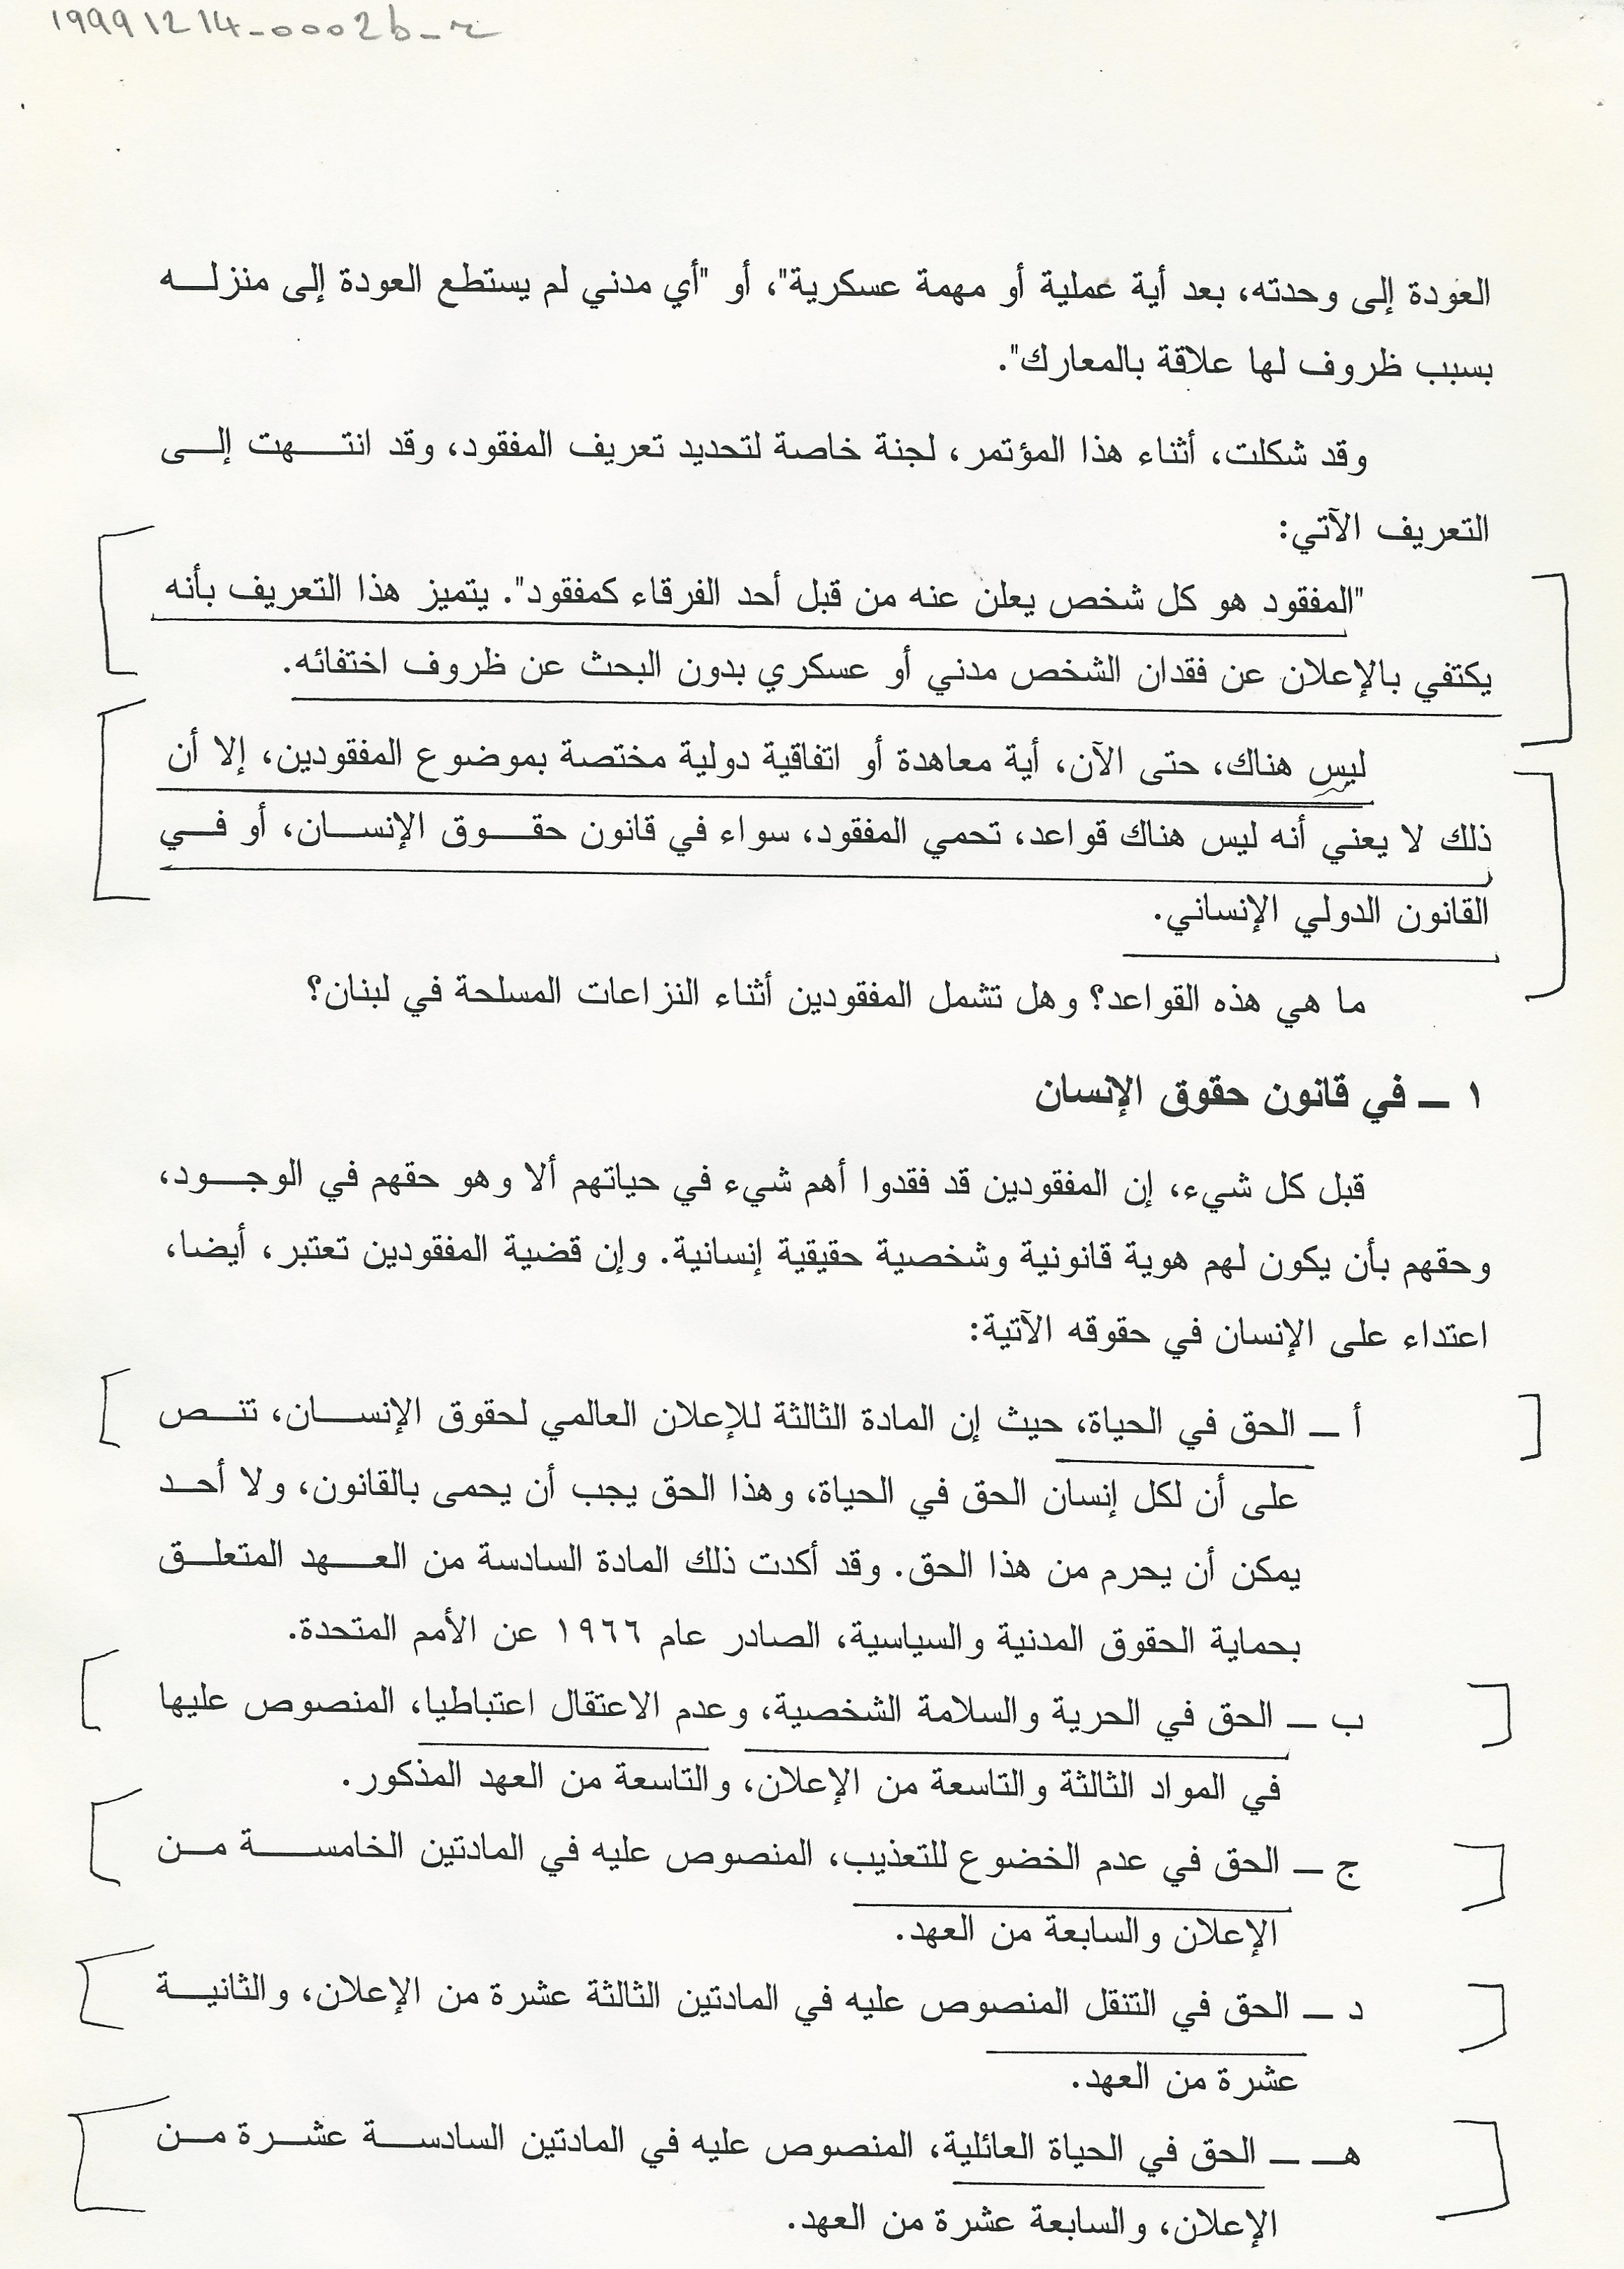 19991214-0002b-r
العودة إلى وحدته، بعد أية عملية أو مهمة عسكرية"، أو "أي مدني لم يستطع العودة إلى منزله
بسبب ظروف لها علاقة بالمعارك".
وقد شكلت، أثناء هذا المؤتمر، لجنة خاصة لتحديد تعريف المفقود، وقد انتهت إلى
التعريف الآتي:
"المفقود هو كل شخص يعلن عنه من قبل أحد الفرقاء كمفقود". يتميز هذا التعريف بأنه
يكتفي بالإعلان عن فقدان الشخص مدني أو عسكري بدون البحث عن ظروف اختفائه.
ليس هناك، حتى الآن، أية معاهدة أو اتفاقية دولية مختصة بموضوع المفقودين، إلا أن
ذلك لا يعني أنه ليس هناك قواعد، تحمي المفقود، سواء في قانون حقوق الإنسان، أو في
القانون الدولي الإنساني.
ما هي هذه القواعد؟ وهل تشمل المفقودين أثناء النزاعات المسلحة في لبنان؟
١ ــ في قانون حقوق الإنسان
قبل كل شيء، إن المفقودين قد فقدوا أهم شيء في حياتهم ألا وهو حقهم في الوجود،
وحقهم بأن يكون لهم هوية قانونية وشخصية حقيقية إنسانية. وإن قضية المفقودين تعتبر، أيضا،
اعتداء على الإنسان في حقوقه الآتية:
أ ــ الحق في الحياة، حيث إن المادة الثالثة للإعلان العالمي لحقوق الإنسان، تنص
على أن لكل إنسان الحق في الحياة، وهذا الحق يجب أن يحمى بالقانون، ولا أحد
يمكن أن يحرم من هذا الحق. وقد أكدت ذلك المادة السادسة من العهد المتعلق
بحماية الحقوق المدنية والسياسية، الصادر عام ١٩٦٦ عن الأمم المتحدة.
ب ــ الحق في الحرية والسلامة الشخصية، وعدم الاعتقال اعتباطيا، المنصوص عليها
في المواد الثالثة والتاسعة من الإعلان، والتاسعة من العهد المذكور.
ج ــ الحق في عدم الخضوع للتعذيب، المنصوص عليه في المادتين الخامسة من
الإعلان والسابعة من العهد.
د ــ الحق في التنقل المنصوص عليه في المادتين الثالثة عشرة من الإعلان، والثانية
عشرة من العهد.
هـ ــ الحق في الحياة العائلية، المنصوص عليه في المادتين السادسة عشرة من
الإعلان، والسابعة عشرة من العهد.